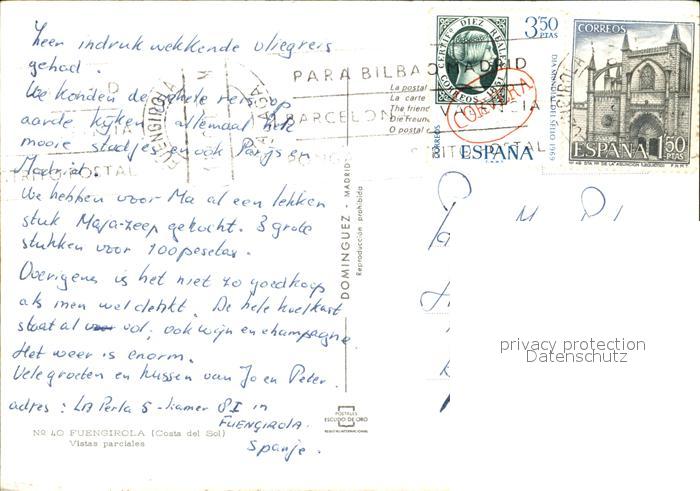 Zeer indruk wekkende vliegreis
gehad.
We konden de hele reis op
aarde kijken, allemaal hele
mooie stadjes en ook Parijs en
Madrid.
We hebben voor Ma al een lekker
stuk Maja-zeep gekocht. 3 grote
stukken voor 100 pesetas.
Overigens is het niet zo goedkoop
als men wel denkt. De hele koelkast
staat al vol, ook wijn en champagne.
Het weer is enorm.
Vele groeten en kussen van Jo en Peter.
adres: La Perla 5 - kamer 8I in
FUENGIROLA.
Spanje.
Nº 40 FUENGIROLA (Costa del Sol)
Vistas parciales
DOMINGUEZ - MADRID
Reproducción prohibida
POSTALES
ESCUDO DE ORO
PARA BILBAO MADRID
BARCELONA
VALENCIA
DISTRITO POSTAL
FUENGIROLA
MALAGA
La postal
La carte
The friend
Die freun
O postal
CERTIFDO DIEZ REALES
CORREOS 1851
3,50
PTAS
CORREOS
ESPAÑA
DIA MUNDIAL DEL SELLO 1969
CORREOS
ESPAÑA 1,50
PTAS
CORVERA
privacy protection
Datenschutz